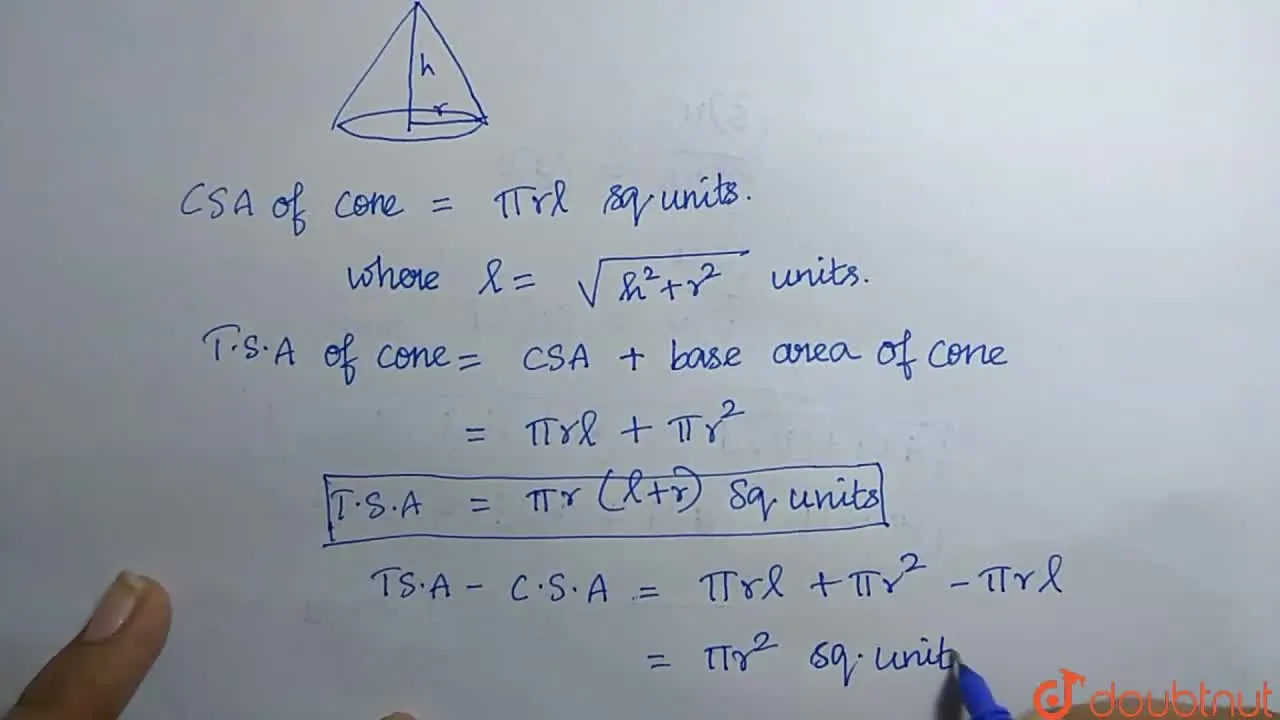 h
r
CSA of cone = πrl sq.units.
where l = √h²+r² units.
T.S.A of cone = CSA + base area of cone
= πrl + πr²
T.S.A = πr (l+r) sq units
TS.A - C.S.A = πrl + πr² - πrl
= πr² sq.unit
doubtnut